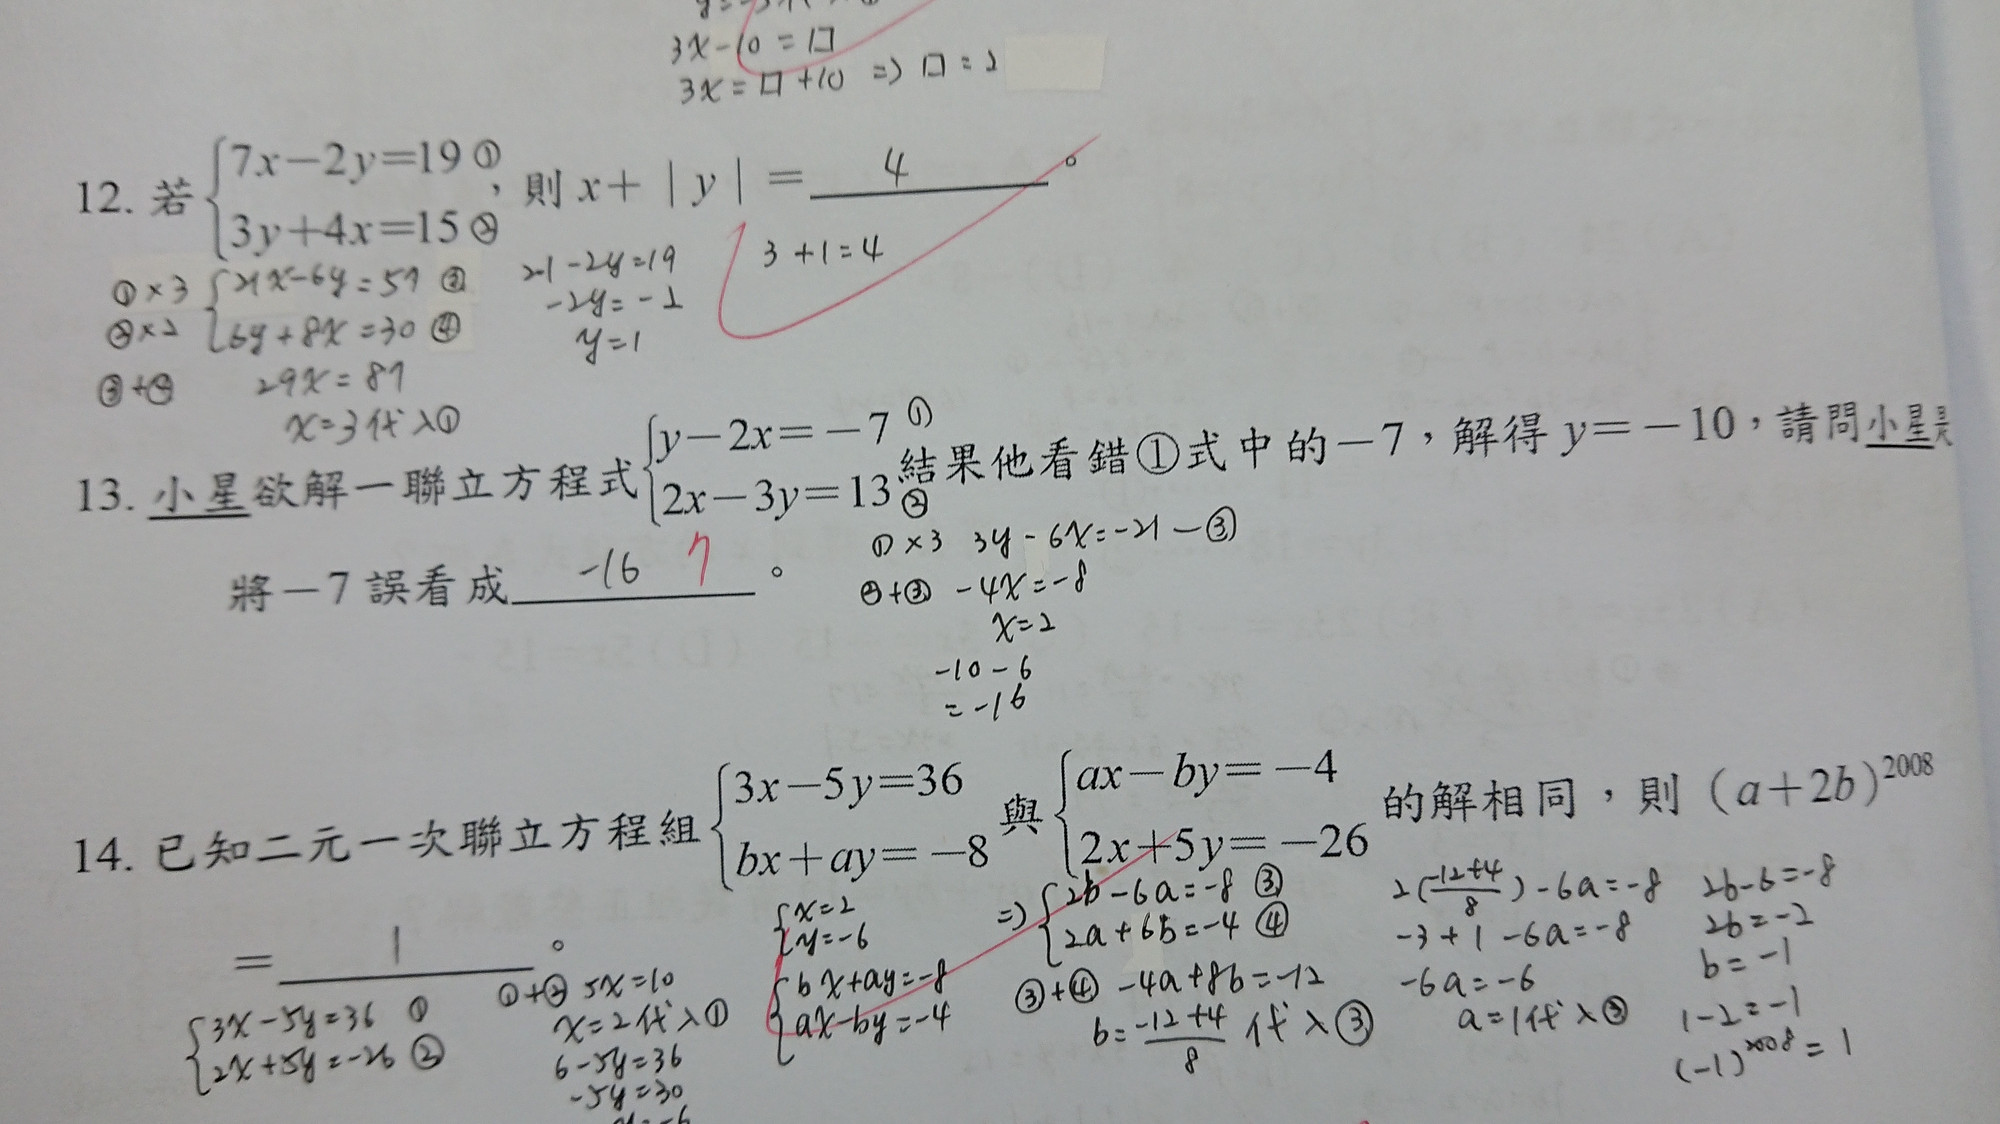 3x-10=□
3x=□+10 => □=2
12. 若 { 7x-2y=19 ①
3y+4x=15 ② ,則 x+|y|= 4 。
3+1=4
①×3 { 21x-6y=57 ③
②×2 { 6y+8x=30 ④
③+④ 29x=87
x=3代入①
21-2y=19
-2y=-2
y=1
13. 小星欲解一聯立方程式 { y-2x=-7 ①
2x-3y=13 ② 結果他看錯①式中的-7,解得y=-10,請問小星是
將-7誤看成 -16 7 。
①×3 3y-6x=-21-③
②+③ -4x=-8
x=2
-10-6
=-16
14. 已知二元一次聯立方程組 { 3x-5y=36
bx+ay=-8 與 { ax-by=-4
2x+5y=-26 的解相同,則 (a+2b)^2008
= 1 。
{ 3x-5y=36 ①
2x+5y=-26 ②
①+② 5x=10
x=2代入①
6-5y=36
-5y=30
y=-6
{ x=2
y=-6
{ bx+ay=-8
ax-by=-4
=> { 2b-6a=-8 ③
2a+6b=-4 ④
③+④ -4a+8b=-12
b=(-12+4)/8 代入③
2((-12+4)/8)-6a=-8
-3+1-6a=-8
-6a=-6
a=1代入③
2b-6=-8
2b=-2
b=-1
1-2=-1
(-1)^2008=1